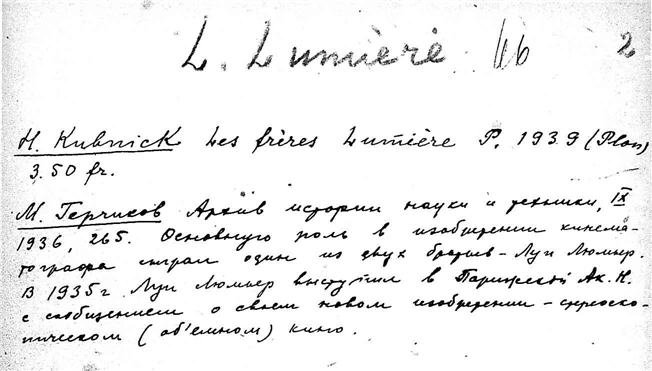 L. Lumière 2
H. Kubnick Les frères Lumière P. 1939 (Plon)
3.50 fr.
М. Герчиков Архив истории науки и техники, IX
1936, 265. Основную роль в изобретении кинема-
тографа сыграл один из двух братьев - Луи Люмьер.
В 1935 г Луи Люмьер выступил в Парижской Ак. Н.
с сообщением о своем новом изобретении - стереоско-
пическом (об'емном) кино.